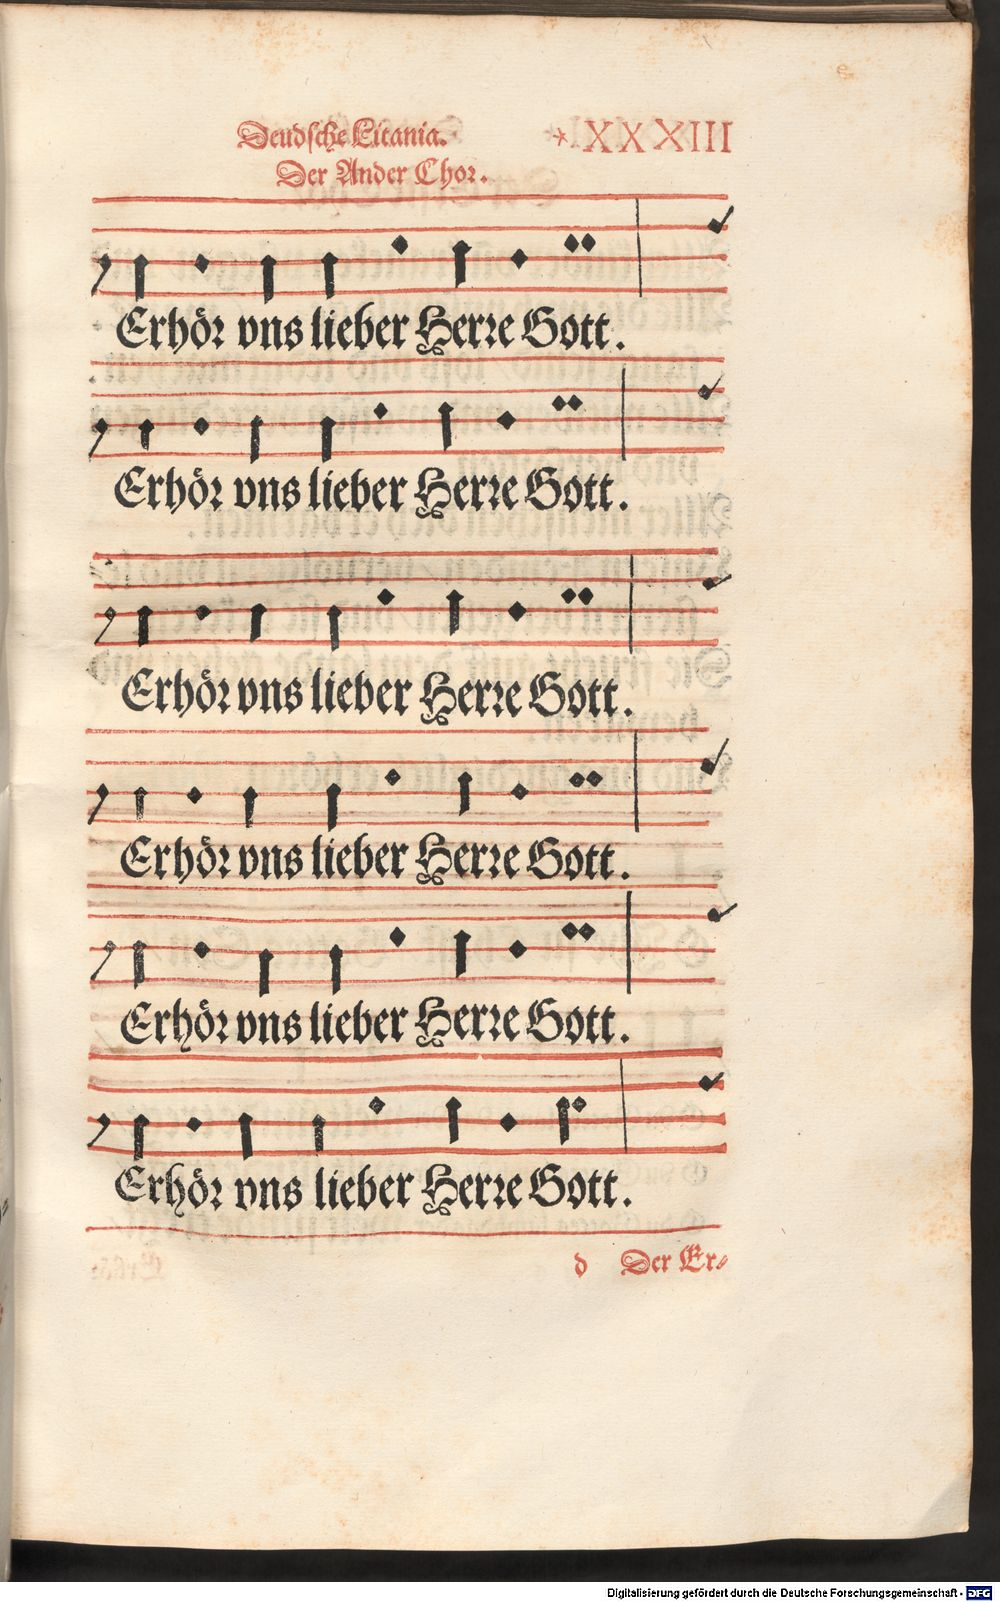 Deudſche Litania.
XXXIII
Der Ander Chor.
Erhör vns lieber Herre Gott.
Erhör vns lieber Herre Gott.
Erhör vns lieber Herre Gott.
Erhör vns lieber Herre Gott.
Erhör vns lieber Herre Gott.
Erhör vns lieber Herre Gott.
d Der Er⸗
Digitalisierung gefördert durch die Deutsche Forschungsgemeinschaft - DFG